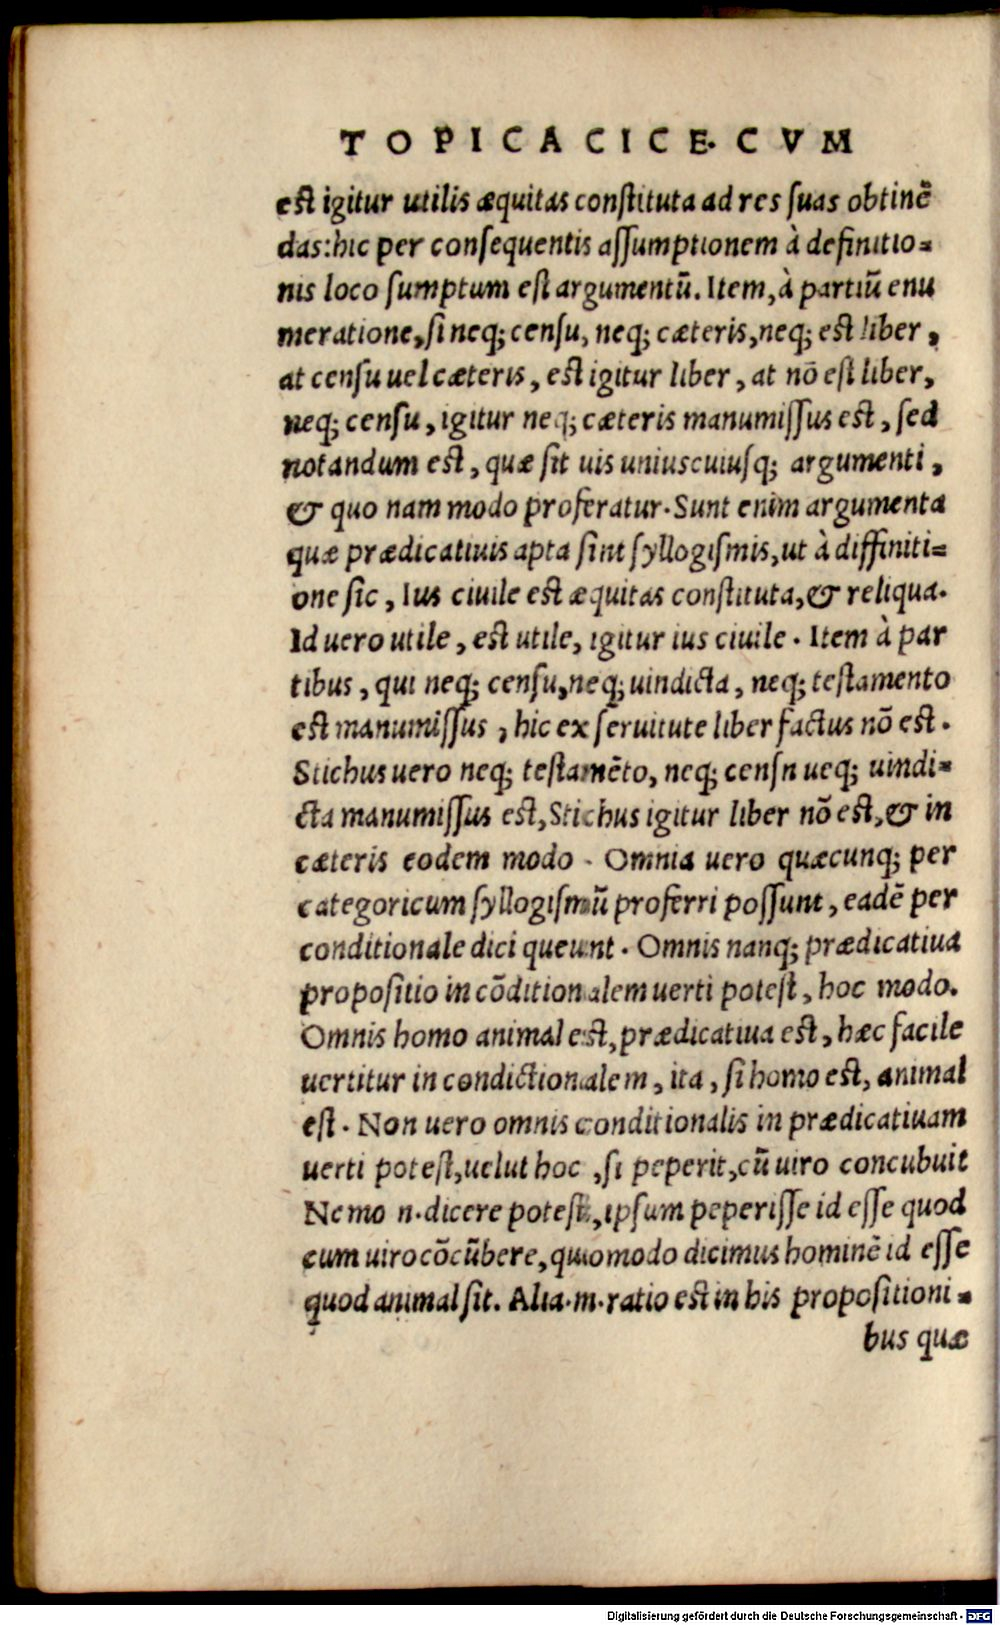 TOPICA CICE. CVM
est igitur utilis æquitas constituta ad res suas obtinē
das: hic per consequentis assumptionem à definitio=
nis loco sumptum est argumentū. Item, à partiū enu
meratione, si neq; censu, neq; cæteris, neq; est liber,
at censu uel cæteris, est igitur liber, at nō est liber,
neq; censu, igitur neq; cæteris manumissus est, sed
notandum est, quæ sit uis uniuscuiusq; argumenti,
& quo nam modo proferatur. Sunt enim argumenta
quæ prædicatiuis apta sint syllogismis, ut à diffiniti=
one sic, Ius ciuile est æquitas constituta, & reliqua.
Id uero utile, est utile, igitur ius ciuile. Item à par
tibus, qui neq; censu, neq; uindicta, neq; testamento
est manumissus, hic ex seruitute liber factus nō est.
Stichus uero neq; testamēto, neq; censn ueq; uindi=
cta manumissus est, Stichus igitur liber nō est, & in
cæteris eodem modo. Omnia uero quæcunq; per
categoricum syllogismū proferri possunt, eadē per
conditionale dici queunt. Omnis nanq; prædicatiua
propositio in cōditionalem uerti potest, hoc modo.
Omnis homo animal est, prædicatiua est, hæc facile
uertitur in condictionalem, ita, si homo est, animal
est. Non uero omnis conditionalis in prædicatiuam
uerti potest, uelut hoc, si peperit, cū uiro concubuit
Nemo n. dicere potest, ipsum peperisse id esse quod
cum uiro cōcūbere, quomodo dicimus hominē id esse
quod animal sit. Alia. m. ratio est in his propositioni=
bus quæ
Digitalisierung gefördert durch die Deutsche Forschungsgemeinschaft - DFG